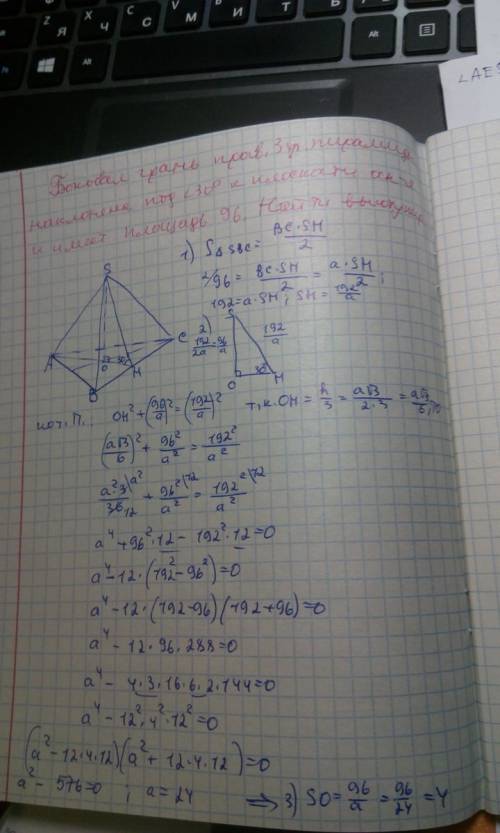 Боковая грань прав. 3уг. пирамиды
наклонена под <30° к плоскости осн-я
и имеет площадь 96. Найти
1) S△SBC = BC·SH/2
²/96 = BC·SH/2 = a·SH/2 ;
192=a·SH; SH=192/a
S
A
B
C
O
H
30°
2) 192/2a = 96/a
S
192/a
O
30°
H
по т. П.: OH²+(96/a)²=(192/a)²
т.к. OH = h/3 = a√3/2·3 = a√3/6, то
(a√3/6)²+96²/a²=192²/a²
a²·3\a²/36 12+96²\12/a²=192²\12/a²
a⁴+96²·12-192²·12=0
a⁴-12·(192²-96²)=0
a⁴-12·(192-96)(192+96)=0
a⁴-12·96·288=0
a⁴-4·3·16·6·2·144=0
a⁴-12²·4²·12²=0
(a²-12·4·12)(a²+12·4·12)=0
a²-576=0 ; a=24 ⟹ 3) SO=96/a=96/24=4